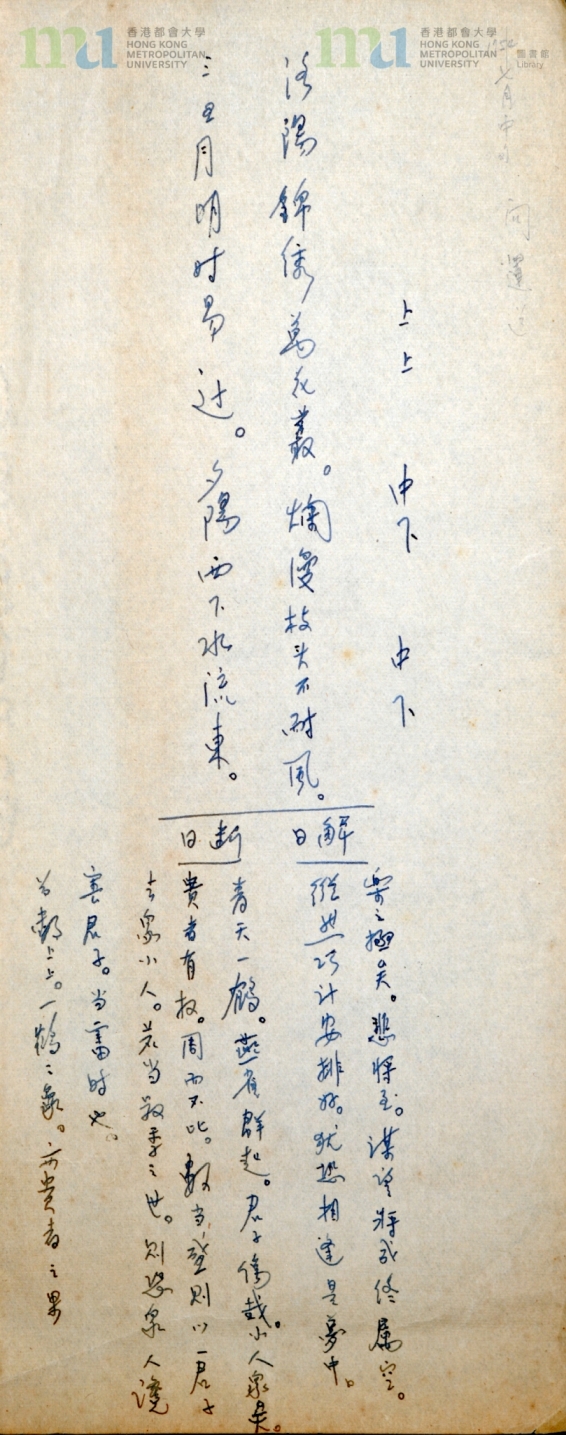 香港都會大學
HONG KONG
METROPOLITAN
UNIVERSITY
香港都會大學
HONG KONG
METROPOLITAN
UNIVERSITY
圖書館
Library
七月中
上上 中下 中下
洛陽錦繡萬花叢。爛漫枝头不耐風。
三五月明时易过。夕陽西下水流東。
解曰
樂之極矣。悲将至。謀望将成终屬空。
縱然巧计安排好。犹恐相逢是夢中。
断曰
青天一鶴。燕雀群起。君子傷哉。小人衆矣。
貴者有权。周而不比。數当盛则以一君子
去衆小人。若当叔季之世。则恐衆人讒
害君子。当審时也。
为數上上。一鶴之象。亦贵者之畧